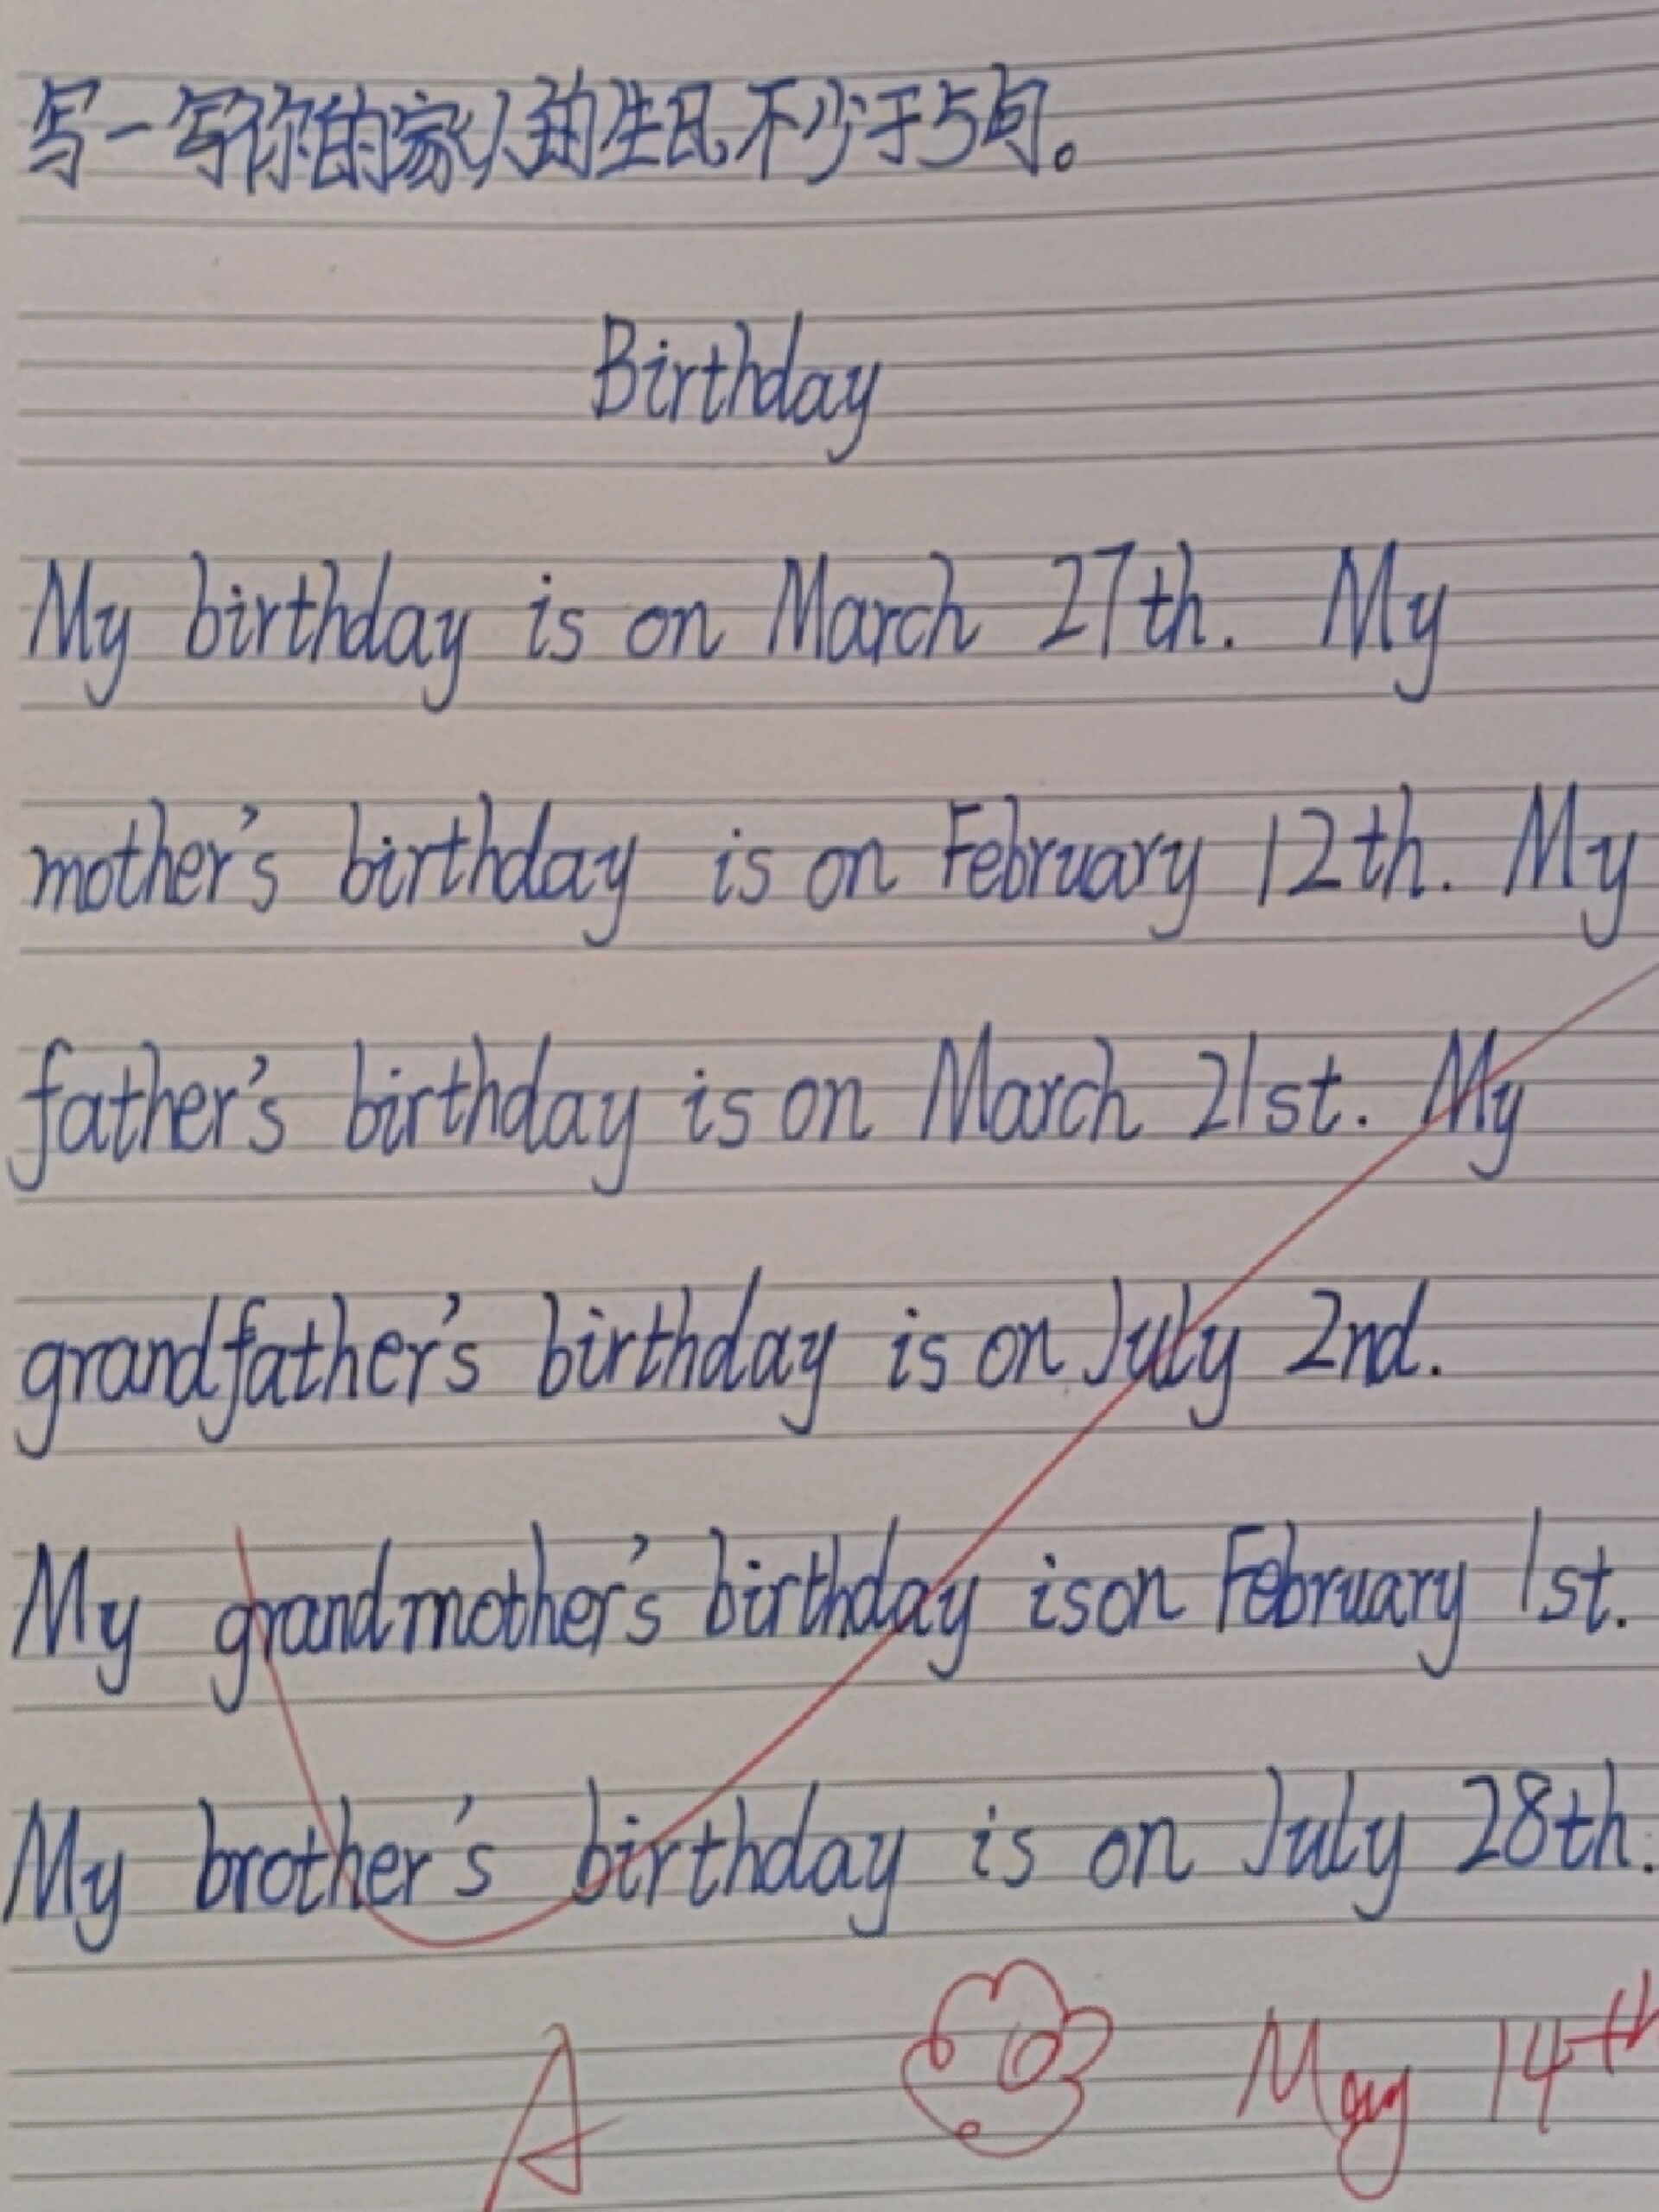 写一写你的家人的生日,不少于5句。
Birthday
My birthday is on March 27th. My
mother's birthday is on February 12th. My
father's birthday is on March 21st. My
grandfather's birthday is on July 2nd.
My grandmother's birthday is on February 1st.
My brother's birthday is on July 28th.
A May 14th